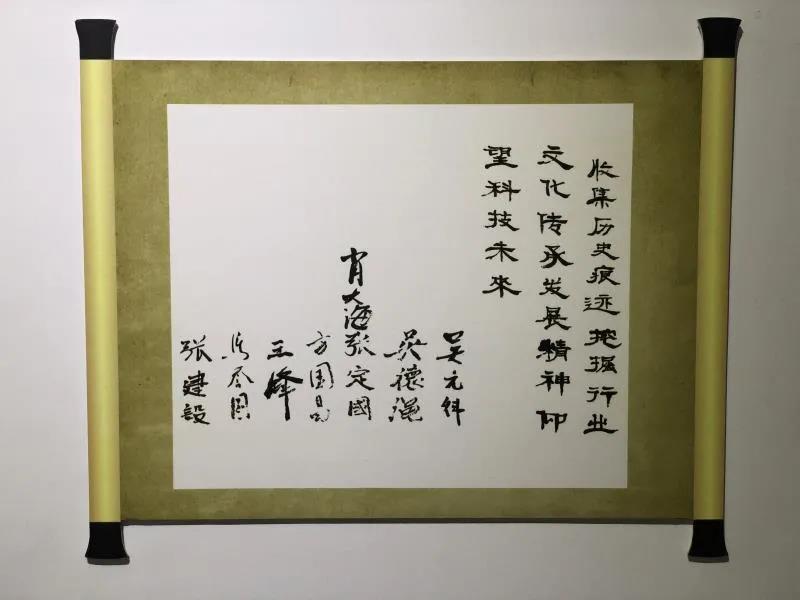 收集历史痕迹挖掘行业
文化传承发展精神仰
望科技未來
吴元科
吴德绳
肖大海
张定國
方国昌
王峰
张建設